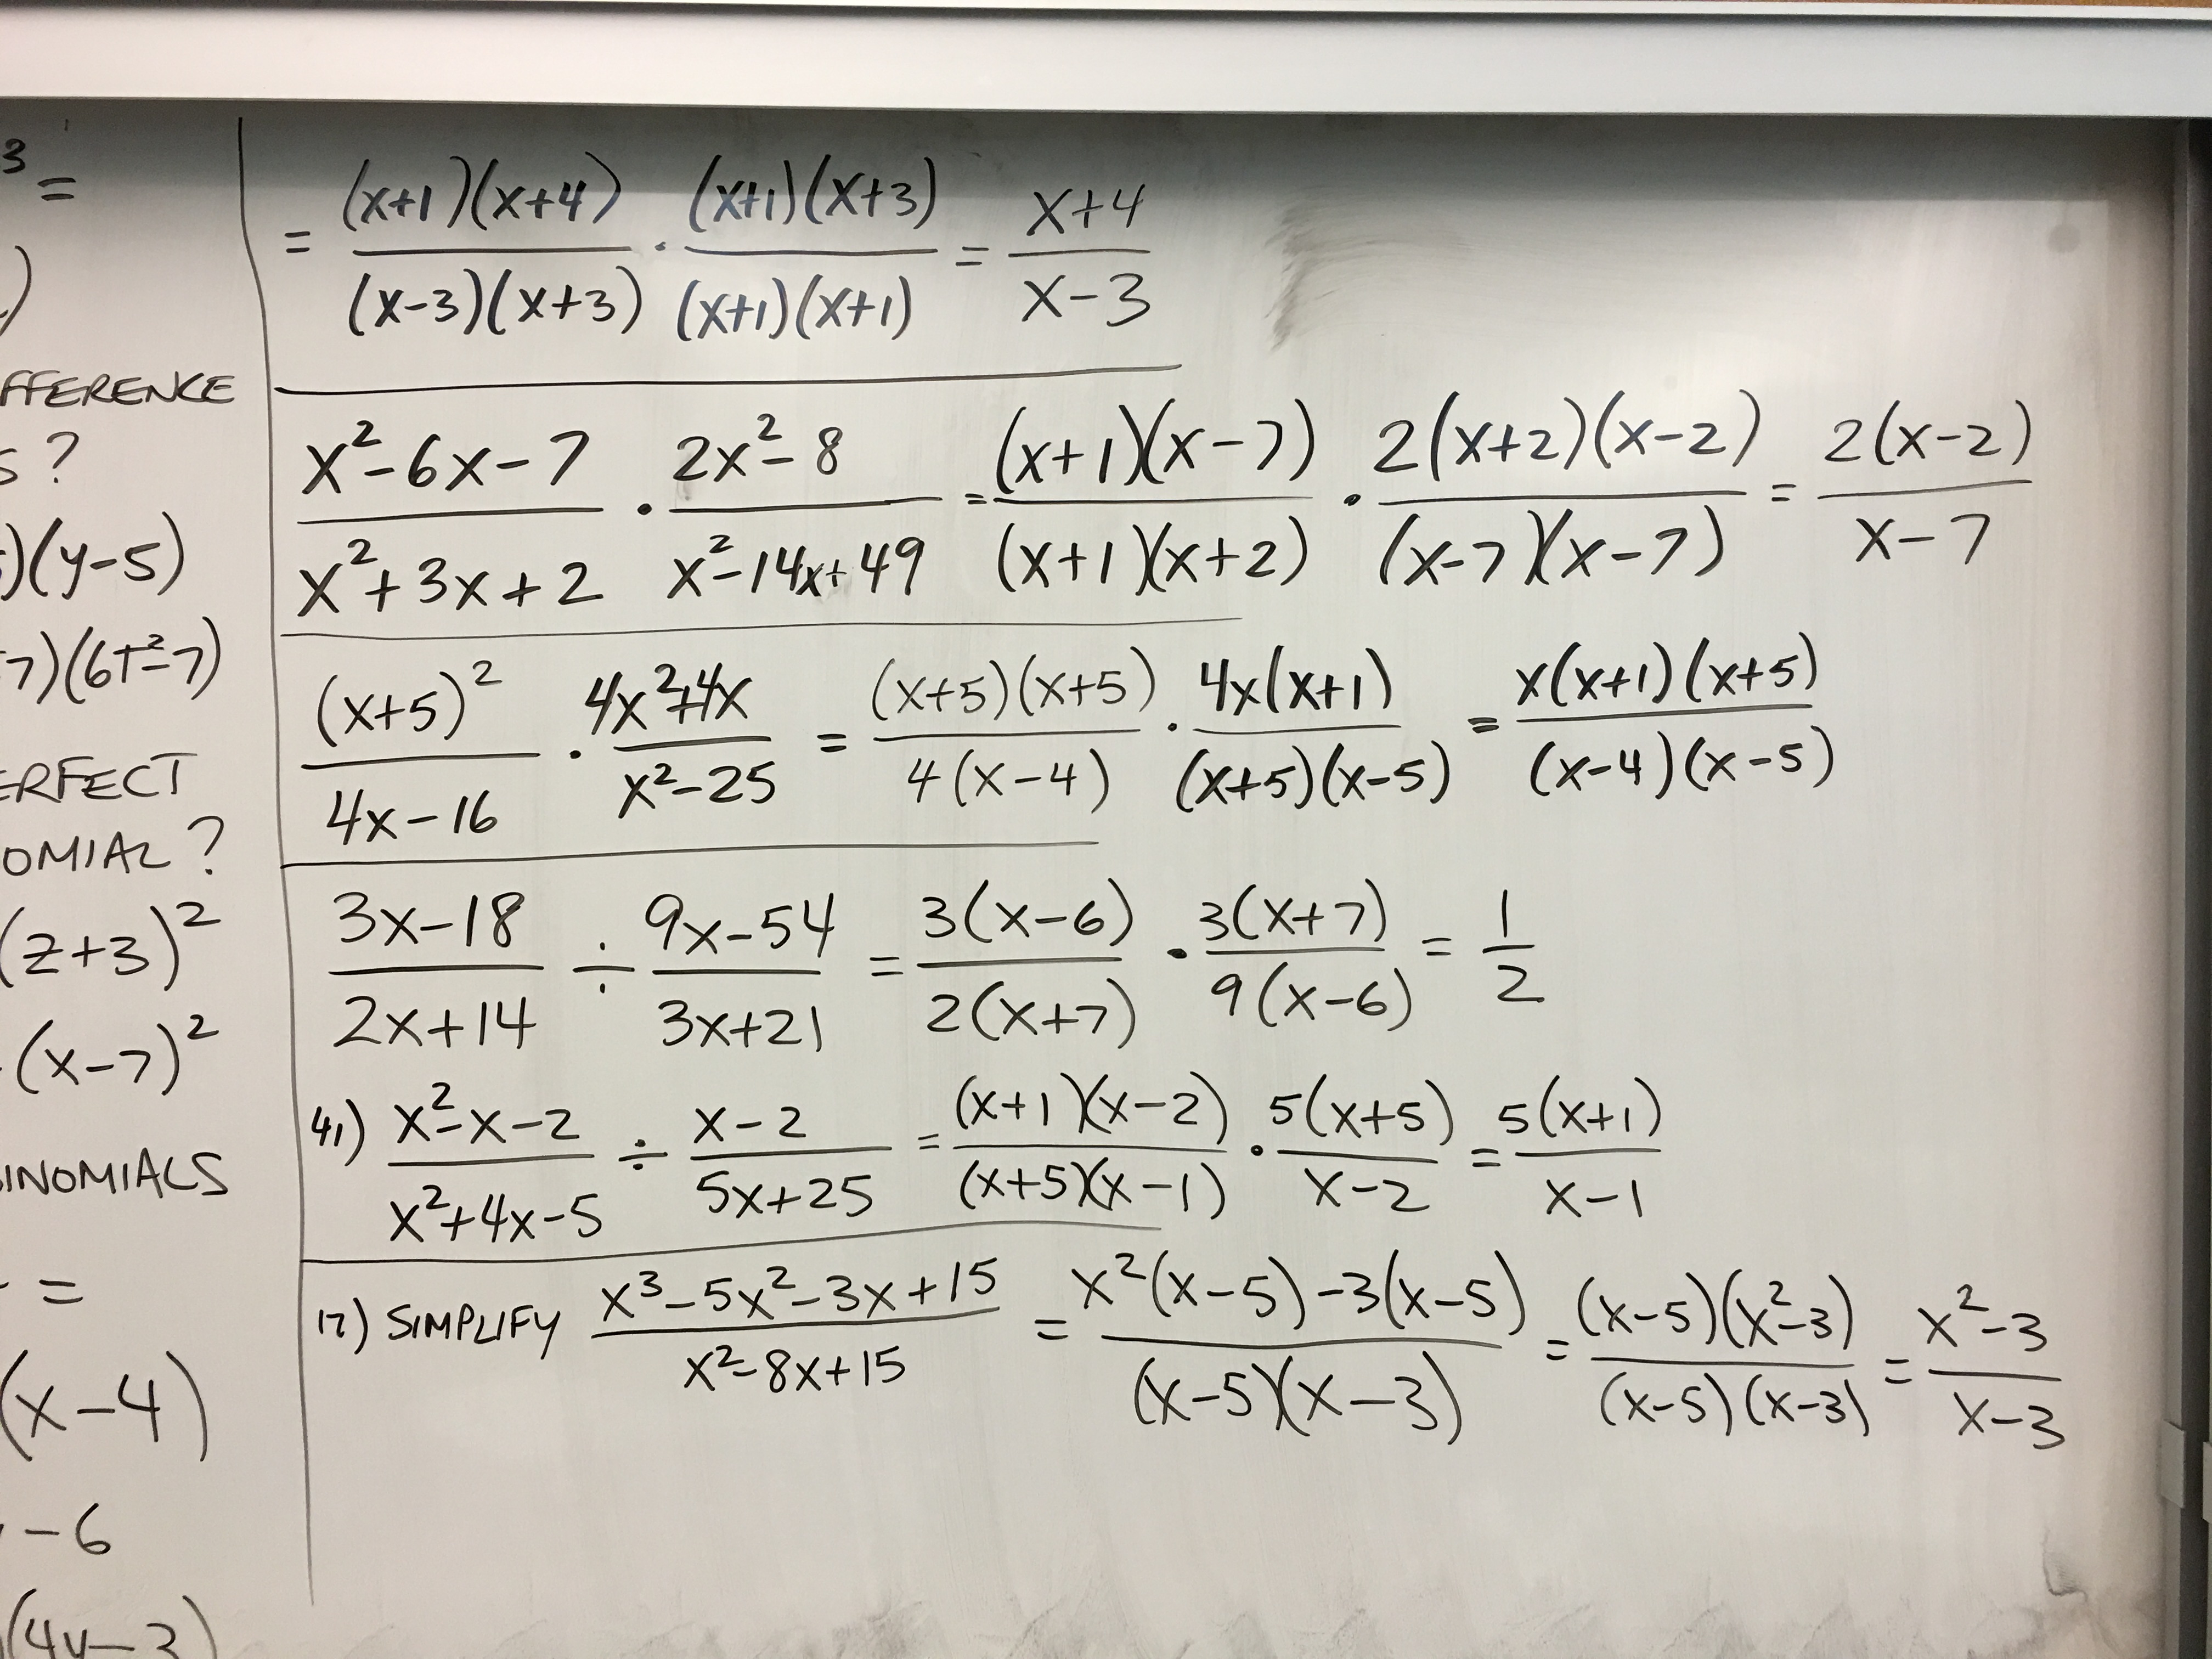 3 =
)
FFERENCE
S ?
)(y-5)
7)(6T²-7)
ERFECT
OMIAL?
(z+3)²
(x-7)²
INOMIALS
=
(x-4)
-6
(4y-3)
= (x+1)(x+4)/(x-3)(x+3) · (x+1)(x+3)/(x+1)(x+1) = x+4/x-3
x²-6x-7/x²+3x+2 · 2x²-8/x²-14x+49 = (x+1)(x-7)/(x+1)(x+2) · 2(x+2)(x-2)/(x-7)(x-7) = 2(x-2)/x-7
(x+5)²/4x-16 · 4x²+4x/x²-25 = (x+5)(x+5)/4(x-4) · 4x(x+1)/(x+5)(x-5) = x(x+1)(x+5)/(x-4)(x-5)
3x-18/2x+14 ÷ 9x-54/3x+21 = 3(x-6)/2(x+7) · 3(x+7)/9(x-6) = 1/2
41) x²-x-2/x²+4x-5 ÷ x-2/5x+25 = (x+1)(x-2)/(x+5)(x-1) · 5(x+5)/x-2 = 5(x+1)/x-1
17) SIMPLIFY x³-5x²-3x+15/x²-8x+15 = x²(x-5)-3(x-5)/(x-5)(x-3) = (x-5)(x²-3)/(x-5)(x-3) = x²-3/x-3